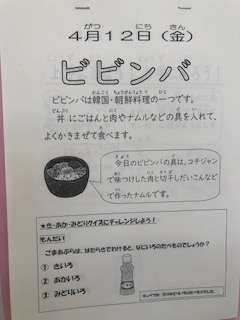 4月12日(金)
ビビンバ
ビビンバは韓国・朝鮮料理の一つです。
丼にごはんと肉やナムルなどの具を入れて、
よくかきまぜて食べます。
今日のビビンバの具は、コチジャン
で味つけした肉と切干しだいこんなど
で作ったナムルです。
★き・あか・みどりクイズにチャレンジしよう!
もんだい
ごまあぶらは、はたらきでわけると、なにいろのたべものでしょうか?
① きいろ
② あかいろ
③ みどりいろ